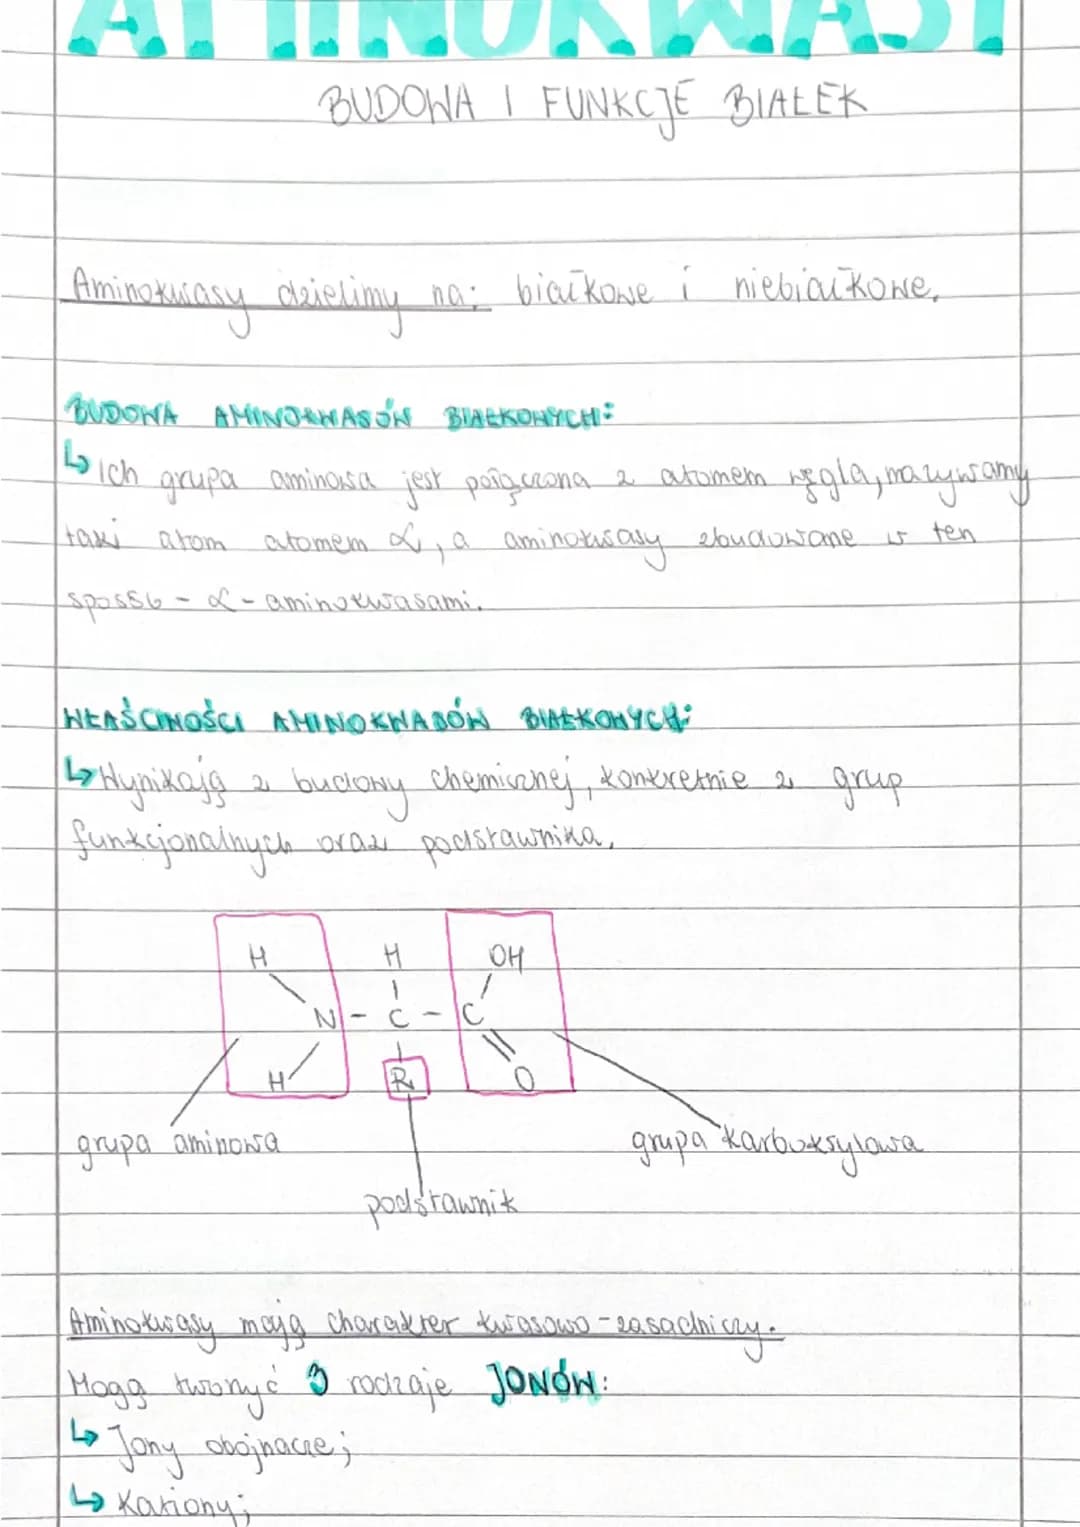 AMINOKWASY
BUDOWA I FUNKCJE BIAŁEK
Aminokwasy dzielimy na: białkowe i niebiałkowe.
BUDOWA AMINOKWASÓW BIAŁKOWYCH:
↳ Ich grupa aminowa jest połączona z atomem węgla, nazywamy
taki atom atomem α, a aminokwasy zbudowane w ten
sposób - α - aminokwasami.
WŁAŚCIWOŚCI AMINOKWASÓW BIAŁKOWYCH:
↳ Wynikają z budowy chemicznej, konkretnie z grup
funkcjonalnych oraz podstawnika.
H H OH
N - C - C
H R O
grupa aminowa grupa karboksylowa
podstawnik
Aminokwasy mają charakter kwasowo - zasadniczy.
Mogą tworzyć 3 rodzaje JONÓW:
↳ Jony obojnacze;
↳ Kationy;